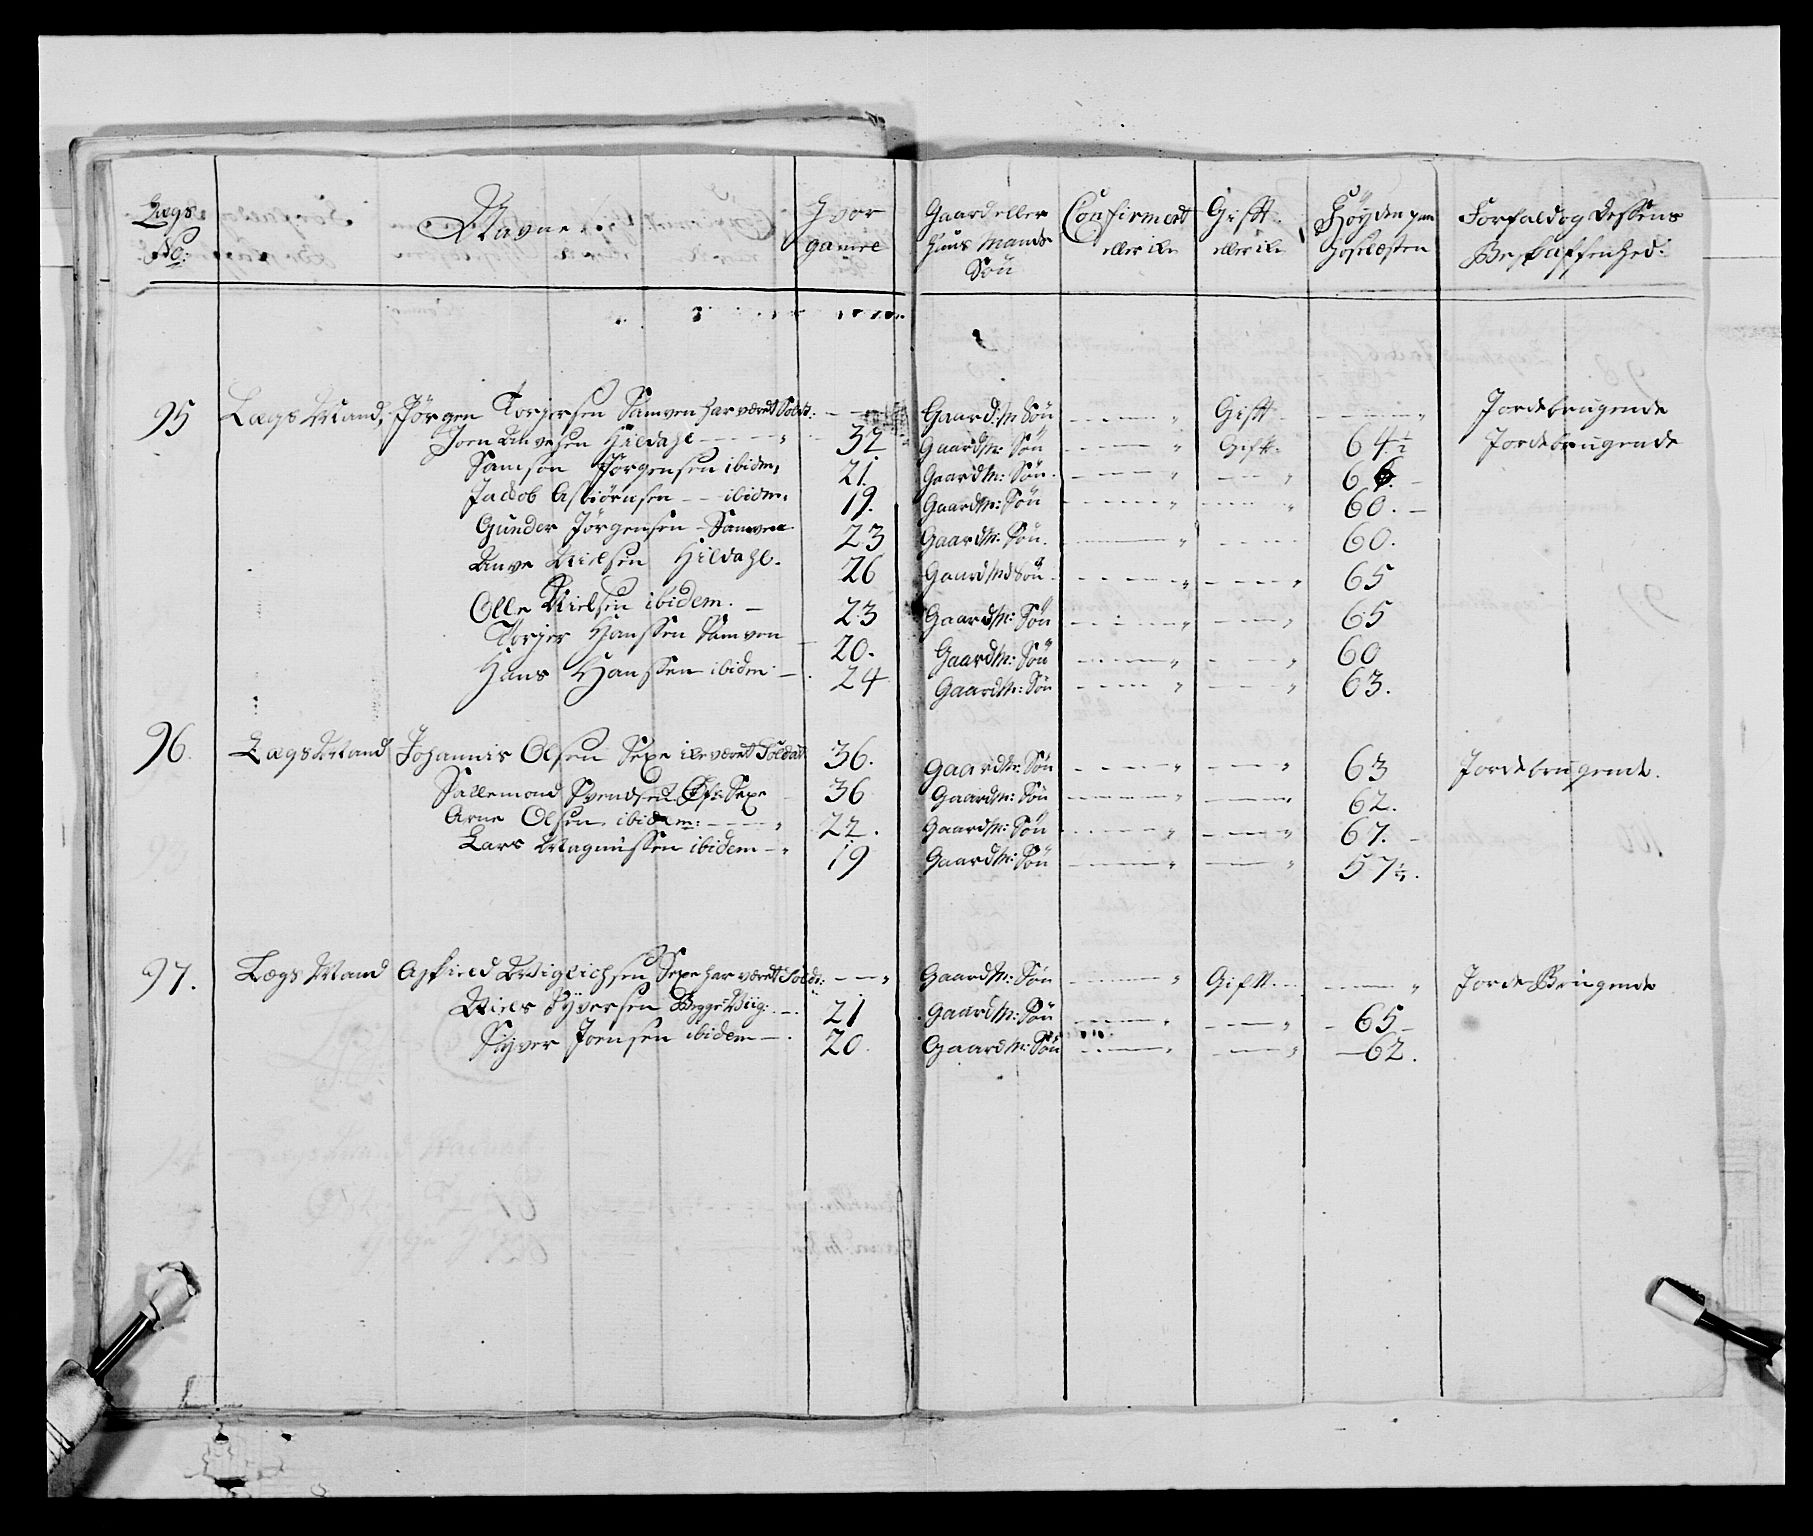 Lægs No: Navne Hvor gamle Gaard eller Huus Mands Søn Confirmert eller ikke Gift eller ike Høyden paa Hoselæsten Forfald og dessens Beskaffenhed:
95 Lægs Mand, Jørgen Torgersen Samven har været Sold: — — " Gaard:M Søn — — — " Gift — — — " Jordebrugende
Joen Anvesen Hildahl — — — " 32 Gaard M: Søn — — — " Gift. 64 1/2 Jordebrugende
Samson Jørgensen ibidem, 21. Gaard M: Søn. — — — " — — " 66. —
Jackob Asbiørnsen — — ibidem: 19. Gaard M: Søn — — — " — — " 60. —
Gunder Jørgensen — Samven 23 Gaard M: Søn. — — — " — — — 60.
Anve Nielsen Hildahl. 26 Gaard Md Søn — — — " — — — " 65
Olle Nielsen ibidem. — 23 Gaard M: Søn — — — " — — — " 65
Torger Hanssen Samven — 20. Gaard M: Søn — — — " — — " 60
Hans Hanssen ibidem — 24 Gaard M: Søn — — — " — — — " 63.
96. Lægs Mand Johannis Olsen Sexe ike været Soldat 36. Gaard M: Søn — — — " — — — " 63 Jordebrugende.
Sallemond Svendsen Øfr: Sexe 36 Gaard M: Søn — — — " — — — " 62.
Arne Olsen ibidem: — — — " 22. Gaard M: Søn — — — " — — — " 67. —
Lars Magnussen ibidem — " 19 Gaard M: Søn — — — " — — — " 57 1/2.
97. Lægs Mand Asfield Wiglichsen Sexe har været Sold: — — " Gaard M: Søn — — — " Gift. — — — — " Jorde Brugende
Niels Syversen Bergge Wiig: — . 21 Gaard M: Søn — — — " — — — " — 65 —
Siyver Joensen ibidem — . 20. Gaard M: Søn — — — " — — — " — 62.